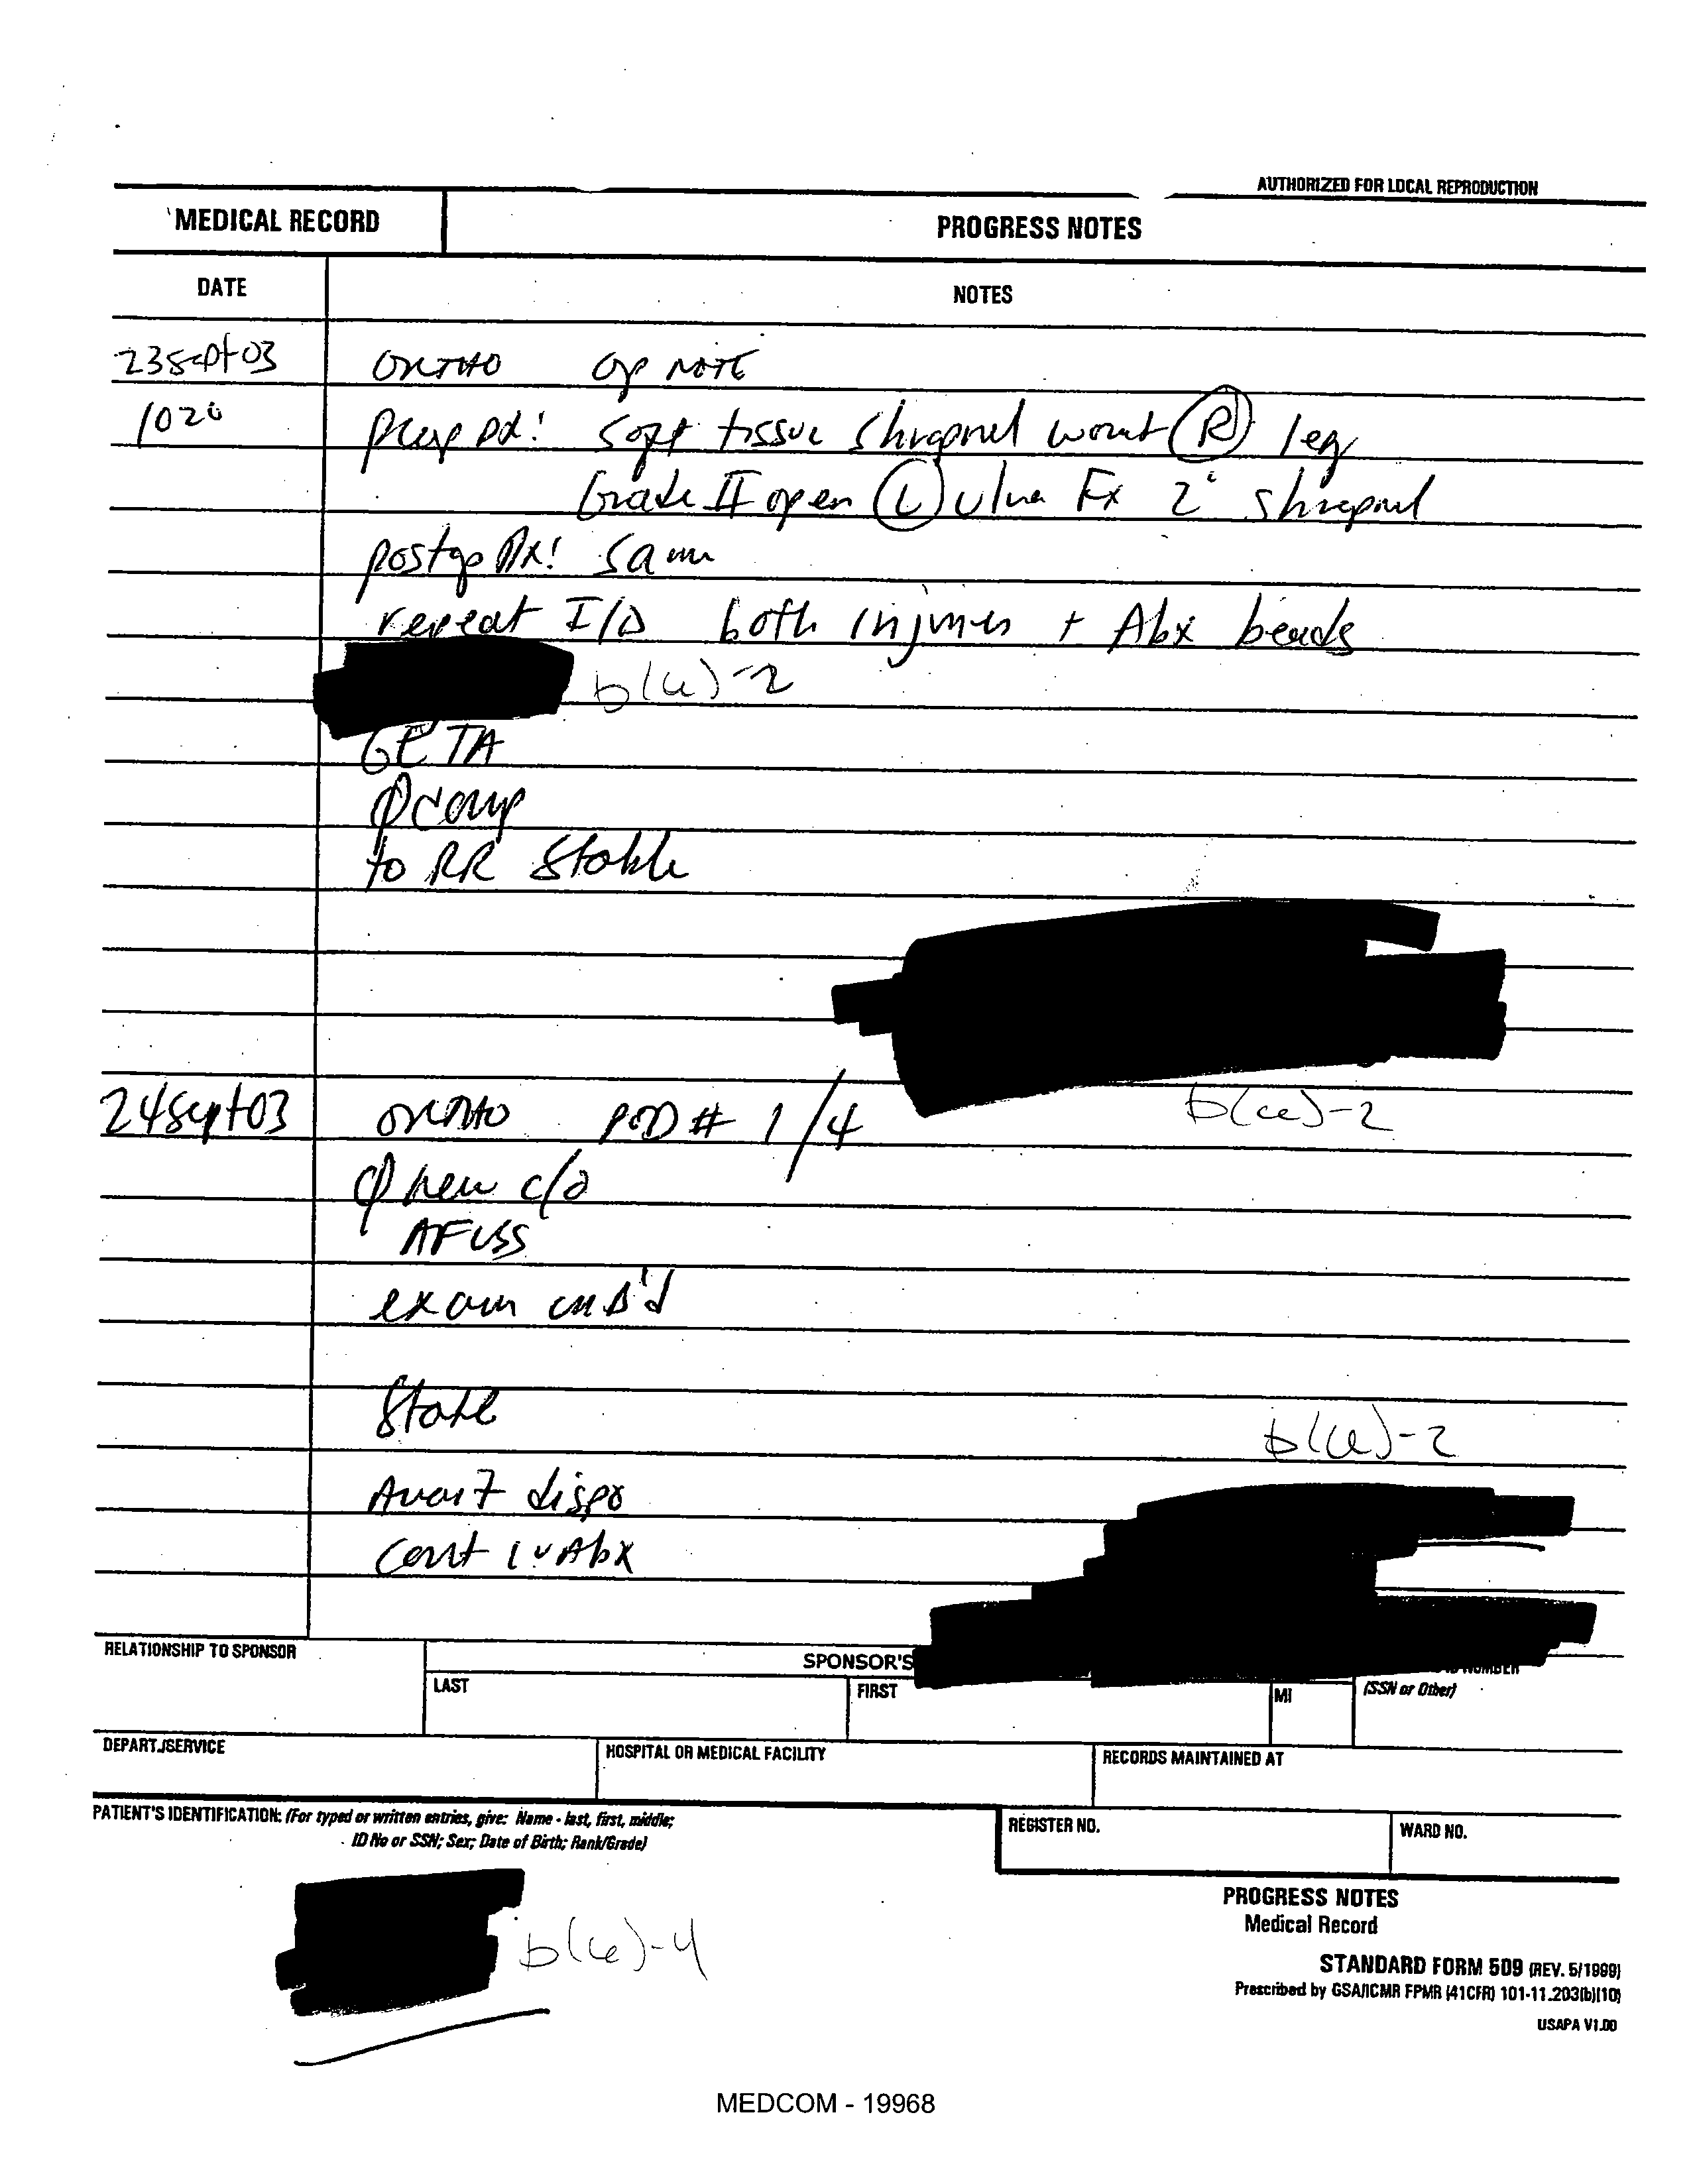 AUTHORIZED FOR LOCAL REPRODUCTION
MEDICAL RECORD
PROGRESS NOTES
DATE
NOTES
23Sept03 ORTHO Op NOTE
1020 preop DX: Soft tissue shrapnel wound (R) leg
Grade II open (L) ulna Fx 2° shrapnel
postop DX: Same
repeat I/D both injuries + Abx beads
b(6)-2
GETA
Ø comp
to RR Stable
b(6)-2
24Sept03 ORTHO POD # 1/4
Ø new c/o
AFVSS
exam
Stable
b(6)-2
Await dispo
Cont IV Abx
RELATIONSHIP TO SPONSOR
SPONSOR'S
LAST
FIRST
MI
NUMBER
(SSN or Other)
DEPART./SERVICE
HOSPITAL OR MEDICAL FACILITY
RECORDS MAINTAINED AT
PATIENT'S IDENTIFICATION: (For typed or written entries, give: Name - last, first, middle;
ID No or SSN; Sex; Date of Birth; Rank/Grade)
REGISTER NO.
WARD NO.
b(6)-4
PROGRESS NOTES
Medical Record
STANDARD FORM 509 (REV. 5/1999)
Prescribed by GSA/ICMR FPMR (41CFR) 101-11.203(b)(10)
USAPA V1.00
MEDCOM - 19968